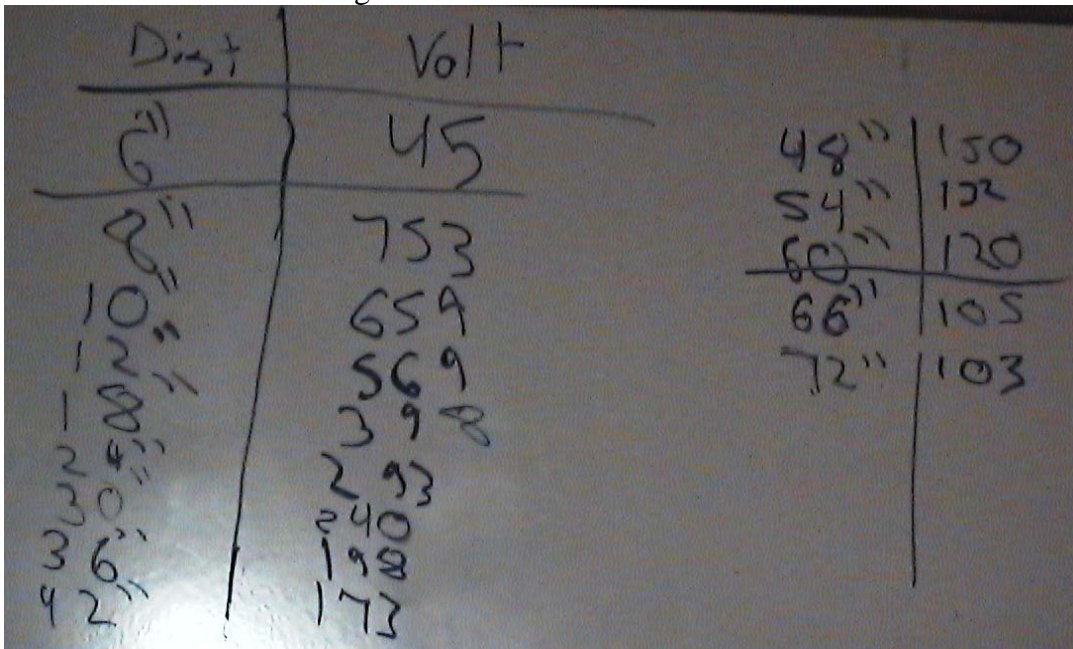 Dist Volt
6" 45
8" 753
10" 659
12" 569
18" 398
24" 293
30" 240
36" 198
42" 173
48" 150
54" 132
60" 120
66" 105
72" 103